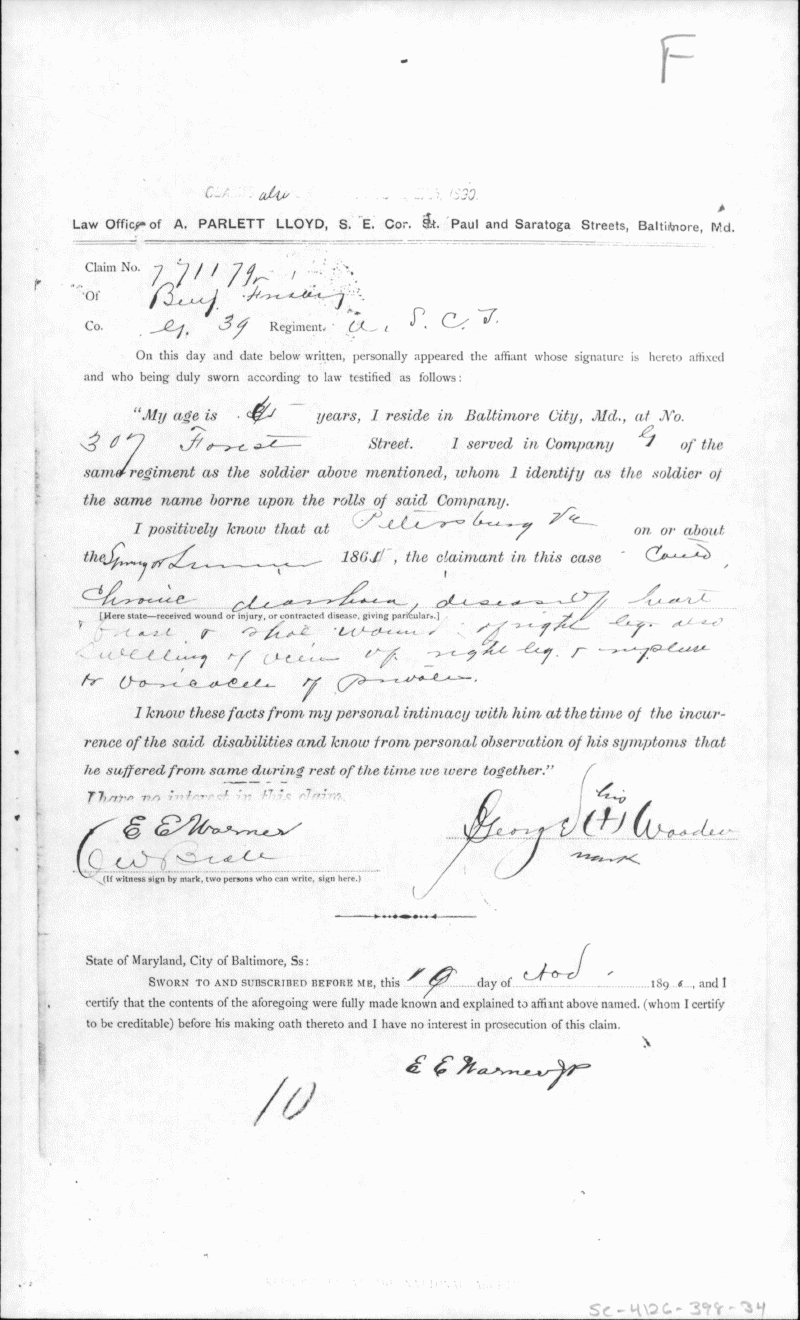 F
also 1890.
Law Office of A. PARLETT LLOYD, S. E. Cor. St. Paul and Saratoga Streets, Baltimore, Md.
Claim No. 771179
Of Benj. Frisby
Co. G. 39 Regiment. U. S. C. T.
On this day and date below written, personally appeared the affiant whose signature is hereto affixed
and who being duly sworn according to law testified as follows:
"My age is years, I reside in Baltimore City, Md., at No.
307 Forest Street. I served in Company G of the
same regiment as the soldier above mentioned, whom I identify as the soldier of
the same name borne upon the rolls of said Company.
I positively know that at Petersburg Va on or about
the Spring or Summer 186, the claimant in this case Contd
Chronic diarrhoea, disease of heart
[Here state—received wound or injury, or contracted disease, giving pariculars.]
& shot wound of right leg. also
swelling of vein of right leg. &
or varicocele of privates.
I know these facts from my personal intimacy with him at the time of the incur-
rence of the said disabilities and know from personal observation of his symptoms that
he suffered from same during rest of the time we were together."
I have no interest in this claim.
E E Warner
his
George (+) Wooden
mark
C W Beale
(If witness sign by mark, two persons who can write, sign here.)
State of Maryland, City of Baltimore, Ss:
SWORN TO AND SUBSCRIBED BEFORE ME, this 19 day of Nov. 189, and I
certify that the contents of the aforegoing were fully made known and explained to affiant above named. (whom I certify
to be creditable) before his making oath thereto and I have no interest in prosecution of this claim.
E E Warner JP
10
Sc-4126-398-34